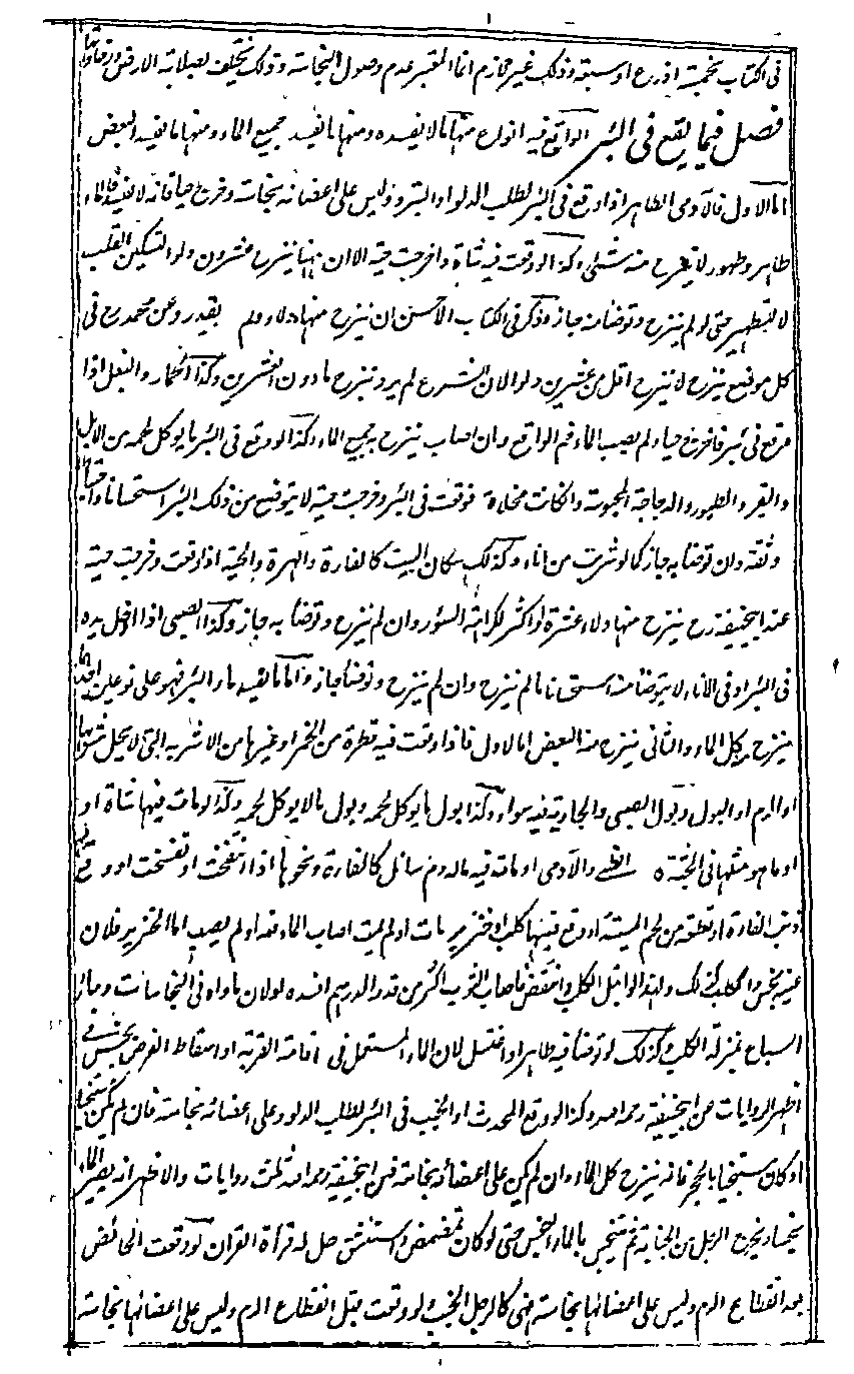 فى الكتاب بخمسة اذرع او سبعة وذلك غير لازم انما المعتبر عدم وصول النجاسة وذلك يختلف بصلابة الارض ورخاوتها
فصل فيما يقع فى البئر الواقع فيه انواع منها ما لا يفسده ومنها ما يفسد جميع الماء ومنها ما يفسد البعض
اما الاول فالآدمى الطاهر اذا وقع فى البئر لطلب الدلو او التبرد وليس على اعضائه نجاسة وخرج حيا فانه لا يفسد فالماء
طاهر وطهور لا ينزح منه شئ وكذا لو وقعت فيه شاة واخرجت حية الا ان ههنا ينزح عشرون دلوا لتسكين القلب
لا للتطهير حتى لو لم ينزح وتوضأ منه جاز وذكر فى الكتاب الاحسن ان ينزح منها دلاء ولم يقدر وعن محمد رح فى
كل موضع ينزح لا ينزح اقل من عشرين دلوا لان الشرع لم يرد بنزح ما دون العشرين وكذا الحمار والبغل اذا
وقع فى بئر فاخرج حيا ولم يصب الماء فم الواقع وان اصاب ينزح جميع الماء وكذا لو وقع فى البئر ما يوكل لحمه من الابل
والبقر والطيور والدجاجة المحبوسة وان كانت مخلاة فوقعت فى البئر وخرجت حية لا يتوضع من ذلك البئر استحسانا واحتياطا
وثقة وان توضأ به جاز كما لو شربت من اناء وكذلك سكان البيت كالفارة والهرة والحية اذا وقعت وخرجت حية
عند ابيحنيفة رح ينزح منها دلاء عشرة او اكثر لكراهة السؤر وان لم ينزح وتوضأ به جاز وكذا الصبى اذا ادخل يده
فى البئر او فى الاناء لا يتوضأ منه استحسانا ما لم ينزح وان لم ينزح وتوضأ جاز واما ما يفسد ماء البئر فهو على نوعين احدهما
ينزح كل الماء والثانى ينزح منه البعض اما الاول فاذا وقعت فيه قطرة من الخمر او غيرها من الاشربة التى لا يحل شربها
او الدم او البول وبول الصبى والجارية فيه سواء وكذا بول ما يوكل لحمه وبول ما لا يوكل لحمه وكذا لو مات فيها شاة او
او ما هو مثلها فى الجثة كالظبى والآدمى او مات فيه ماله دم سائل كالفارة ونحوها اذا انتفخت او تفسخت او وقع فيها
ذنب الفارة او قطعة من لحم الميتة او وقع فيها كلب او خنزير مات او لم يمت اصاب الماء فمه او لم يصب اما الخنزير فلان
عينه نجس والكلب كذلك ولهذا لو ابتل الكلب وانتفض فاصاب الثوب اكثر من قدر الدرهم افسده او لان ماواه فى النجاسات وسائر
السباع بمنزلة الكلب وكذلك لو توضأ فيه طاهر او اغتسل لان الماء المستعمل فى اقامة القربة او اسقاط الفرض نجس فى
اظهر الروايات عن ابيحنيفة رحمه الله وكذا لو وقع المحدث او الجنب فى البئر لطلب الدلو وعلى اعضائه نجاسة فان لم يكن مستنجيا
او كان مستنجيا بالحجر فانه ينزح كل الماء وان لم يكن على اعضائه نجاسة فعن ابيحنيفة رحمه الله ثلث روايات والاظهر انه يصير الماء
نجسا ويخرج الرجل من الجنابة ثم يتنجس بالماء النجس حتى لو كان تمضمض واستنشق حل له قرأة القران لو وقعت الحائض
بعد انقطاع الدم وليس على اعضائها نجاسة فهى كالرجل الجنب ولو وقعت قبل انقطاع الدم وليس على اعضائها نجاسة